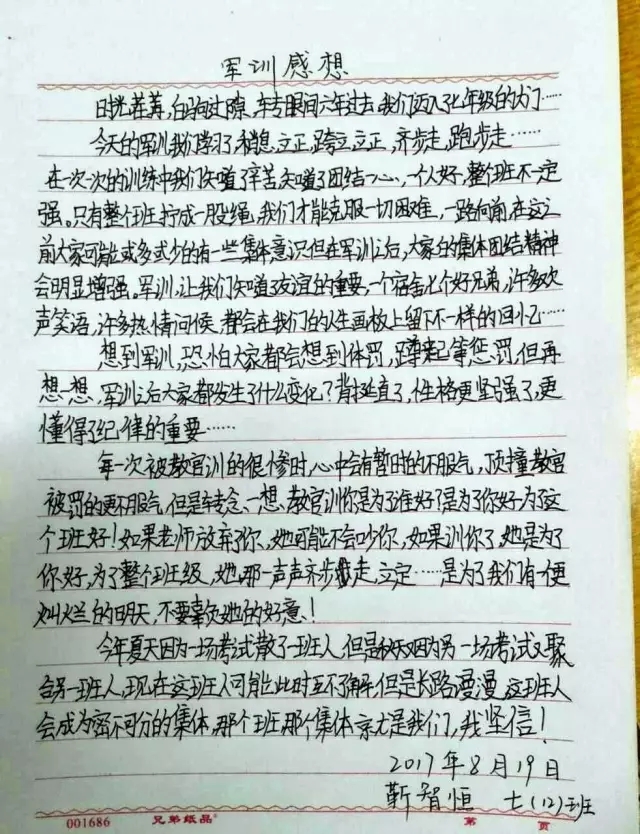 军训感想
时光荏苒，白驹过隙，转眼间六年过去，我们迈入了七年级的大门……
今天的军训我们学习了，稍息，立正，跨立，立正，齐步走，跑步走……
在一次次的训练中我们知道了辛苦知道了团结一心，一个人好，整个班不一定
强。只有整个班拧成一股绳，我们才能克服一切困难，一路向前在这之
前大家可能或多或少的有一些集体意识但在军训之后，大家的集体团结精神
会明显增强。军训，让我们知道了友谊的重要，一个宿舍七个好兄弟，许多欢
声笑语，许多热情问候，都会在我们的人生画板上留下不一样的回忆……
想到军训，恐怕大家都会想到体罚，蹲起等惩罚，但再
想一想，军训之后大家都发生了什么变化？背挺直了，性格更坚强了，更
懂得了纪律的重要……
每一次被教官训的很惨时，心中会有暂时的不服气，顶撞教官
被罚的更不服气，但是转念、一想，教官训你是为了谁好？是为了你好，为了这
个班好！如果老师放弃了你，她可能不会吵你，如果训你了，她是为了
你好，为了整个班级，她那一声声齐步走，立定……是为了我们有一更
灿烂的明天，不要辜负她的好意！
今年夏天因为一场考试散了一班人，但是秋天又因为另一场考试又聚
合另一班人，现在这班人可能此时互不了解，但是长路漫漫，这班人
会成为密不可分的集体，那个班那个集体就是我们，我坚信！
2017年8月19日
靳智恒 七(12)班
001686 兄弟纸品 第 页